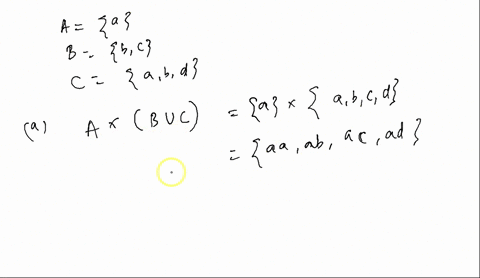 A = {a}
B = {b, c}
C = {a, b, d}
(a) A × (B ∪ C) = {a} × {a, b, c, d}
= {aa, ab, ac, ad}